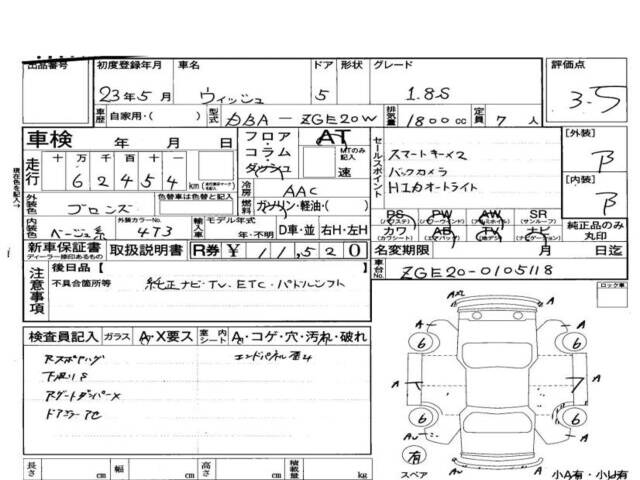 出品番号
初度登録年月 車名 ドア 形状 グレード 評価点
23年5月 ウィッシュ 5 1.8S 3-5
車歴 自家用・( ) 型式 DBA-ZGE20W 排気量 1800cc 定員 7人
車検 年 月 日
フロア・コラム・ダッシュ AT MTのみ記入 速
セールスポイント
スマートキー×2
バックカメラ
HIDオートライト
[外装] B
[内装] B
現在色を記入→
走行 十万千百十一
62454 km
冷房 AAC
燃料 ガソリン・軽油・( )
外装色 ブロンズ 色替車は色替と記入
内装色 ベージュ系 外装カラーNo. 4T3
輸入車 モデル年式 年・不明 D車・並 右H・左H
PS (パワステ) PW (パワーウインド) AW (アルミホイル) SR (サンルーフ)
カワ (カワシート) AB (エアバッグ) TV (地デジ) ナビ (ナビゲーション)
純正品のみ丸印
新車保証書 ディーラー捺印あるもの 取扱説明書 R券 ¥11,520
名変期限 月 日迄
車台No. ZGE20-0105118
注意事項
後日品[ ]
不具合箇所等 純正ナビ・TV. ETC・パドルシフト
ロック車
検査員記入 ガラス A・X要ス 室内シート A・コゲ・穴・汚れ・破れ
下廻りS
AXL
A
6 6
A
6 6
A
有
スペア
A
小A有・小U有
長さ cm 幅 cm 高さ cm 積載量 kg